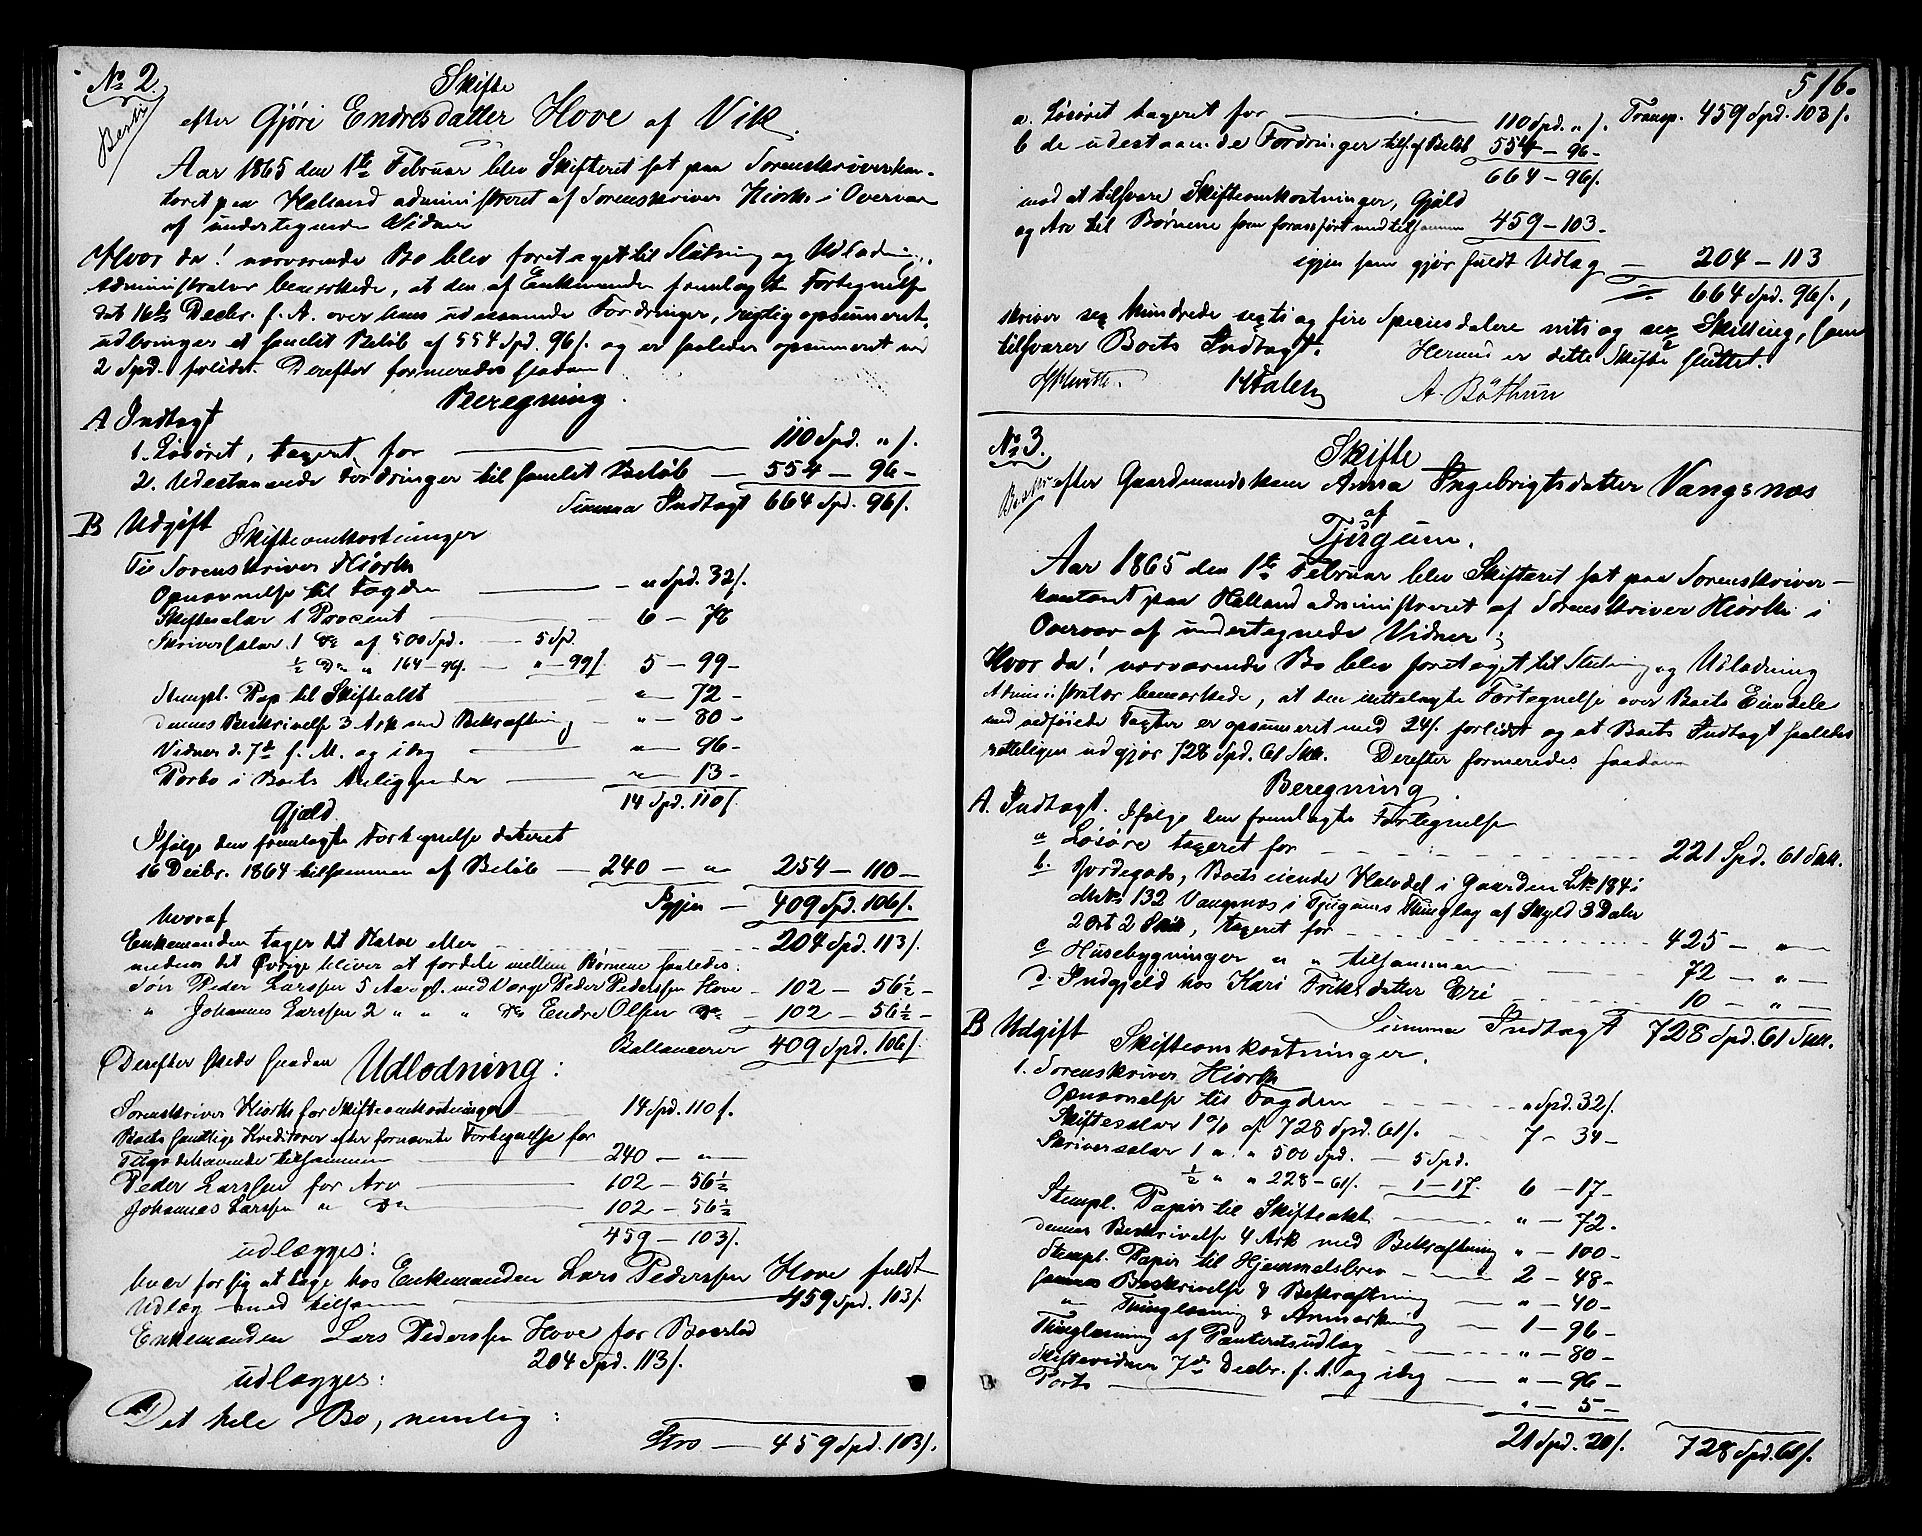 No 2.
Skifte
efter Gjøri Endresdatter Hove af Vik.
Aar 1865 den 1te Februar blev Skifteret sat paa Sorenskriverkon-
toret paa Hælland administreret af Sorenskriver Hiorth i Overvær
af undertegnede Vidner
Hvor da! nærværende Bo blev foretaget til Slutning og Udlodning.
Administrator bemærkede, at den af Enkemanden fremlagte Fortegnelse
dat 16de Decbr. f. A. over hans udestaaende Fordringer, rigtig opsummeret,
udbringer et samlet Beløb af 554 Spd. 96 s. og er saaledes opsummeret med
2 Spd. forlidet. Derefter formeredes saadan
Beregning.
A Indtægt
1. Løsøret, taxeret for 110 Spd. " s.
2. Udestaaende Fordringer til samlet Beløb — 554 — 96 —
Summa Indtægt 664 Spd. 96 s.
B Udgift Skifteomkostninger
Til Sorenskriver Hiorth
Opnævnelse til Fogden — " Spd. 32 s.
Skiftesalær 1 Procent — 6 — 78
Skriversalær 1 do af 500 Spd. — 5 Spd.
½ do " 164 — 96 — " — 99 s. 5 — 99 —
Stempl. Pap til Skifteakt — " — 72 —
dennes Beskrivelse 3 Ark med Bekræftning — " — 80 —
Vidner d. 7de f. M. og idag — " — 96 —
Porto i Boets Anliggender — " — 13 —
14 Spd. 110 s.
Gjæld
Ifølge den fremlagte Fortegnelse dateret
16 Decbr. 1864 tilsammen af Beløb — 240 — " 254 — 110 —
Igjen — 409 Spd. 106 s.
hvoraf
Enkemanden tager det Halve eller 204 Spd. 113 s.
medens det Øvrige bliver at fordele mellem Børnene saaledes:
Søn Peder Larssen 5 Aar gl. med Værge Peder Pederssen Hove — 102 — 56½ —
" Johannes Larssen 2 " " " do Endre Olsen do — 102 — 56½ —
Ballancerer 409 Spd. 106 s.
Derefter skede saadan Udlodning:
Sorenskriver Hiorth for Skifteomkostninger 14 Spd. 110 s.
Boets samtlige Kreditorer efter fornævnte Fortegnelse for
Tilgodehavende tilsammen 240 — "
Peder Larssen for Arv 102 — 56½
Johannes Larssen " do 102 — 56½ —
459 — 103 s.
udlægges:
hver for sig at tage hos Enkemanden Lars Pederssen Hove fuldt
Udlæg med tilsammen 459 Spd. 103 s.
Enkemanden Lars Pederssen Hove for Boeslod
204 Spd. 113 s.
udlægges:
Det hele Bo, nemlig:
— 459 Spd. 103 s.
516.
a. Løsøret taxeret for 110 Spd. " s. Transp. 459 Spd. 103 s.
b de udestaaende Fordringer til af Beløb 554 — 96 —
664 — 96 s.
mod at tilsvare Skifteomkostninger, Gjæld
og Arv til Børnene som foranført med tilsammen 459 — 103 —
igjen som gjør fuldt Udlæg — 204 — 113
664 Spd. 96 s.,
skriver sex Hundrede sexti og fire Speciesdalere niti og sex Skilling, som
tilsvarer Boets Indtægt. Hermed er dette Skifte sluttet.
A. Bøthun
No 3.
Skifte
efter Gaardmandskone Anna Ingebrigtsdatter Vangsnæs
af
Tjugum.
Aar 1865 den 1te Februar blev Skifteret sat paa Sorenskriver-
kontoret paa Hælland administreret af Sorenskriver Hiorth i
Overvær af undertegnede Vidner;
Hvor da! nærværende Bo blev foretaget til Slutning og Udlodning
Administrator bemærkede, at den mettelagte Fortegnelse over Boets Eiendele
med vedføiede Taxter er opsummeret med 24 s. forlidet og at Boets Indtægt saaledes
rettelligen udgjør 728 Spd. 61 Sk. Derefter formeredes saadan
Beregning.
A. Indtægt. Ifølge den fremlagte Fortegnelse
a Løsøre taxeret for 221 Spd. 61 Sk.
b. Jordegods, Boets eiende Halvdel i Gaarden L.No 184 i
Matr. 132 Vangsnæs i Tjugums Thinglag af Skyld 3 Daler
2 Ort 2 Sk, taxeret for 425 — " —
c Husebygninger " " tilsammen 72 — " —
d. Indgjæld hos Kari Eriksdatter Eri 10 — " —
Summa Indtægt 728 Spd. 61 Sk.
B Udgift Skifteomkostninger.
1. Sorenskriver Hiorth
Opnævnelse til Fogden " Spd. 32 s.
Skiftesalær 1% af 728 Spd. 61 s. 7 — 34 —
Skriversalær 1 " " 500 Spd. — 5 Spd.
½ " " 228 — 61 s. — 1 — 17. 6 — 17 —
Stempl. Papir til Skifteakt " — 72 —
dennes Beskrivelse 4 Ark med Bekræftning " — 100 —
Stempl. Papir til Hjemmelsbrev 2 — 48 —
sammes Beskrivelse & Bekræftning " — 40 —
" Thinglæsning & Anmærkning — 1 — 96 —
Thinglæsning af Panteretsudlæg " — 80 —
Skiftevidner 7de Decbr. f. A. og idag — " — 96 —
Porto " — 5 —
21 Spd. 20 s. 728 Spd. 61 s.